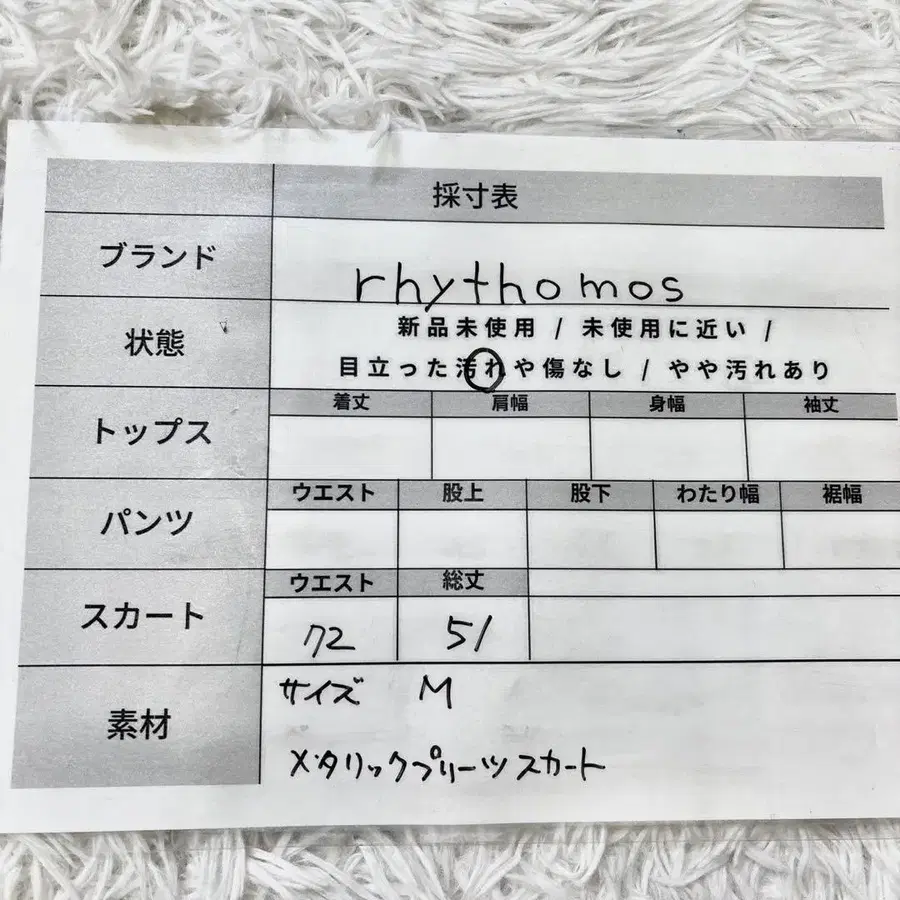 採寸表
ブランド
rhythomos
状態
新品未使用 / 未使用に近い /
目立った汚れや傷なし / やや汚れあり
トップス
着丈 肩幅 身幅 袖丈
パンツ
ウエスト 股上 股下 わたり幅 裾幅
スカート
ウエスト 総丈
72 51
素材
サイズ M
メタリックプリーツスカート